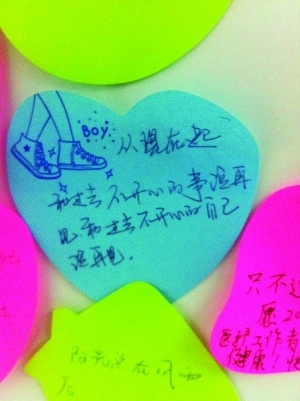 BOY
从现在起
和过去不开心的事说再
见和过去不开心的自己
说再见.
只不过
愿20
医护工作者
健康！
阳光总在风雨
后